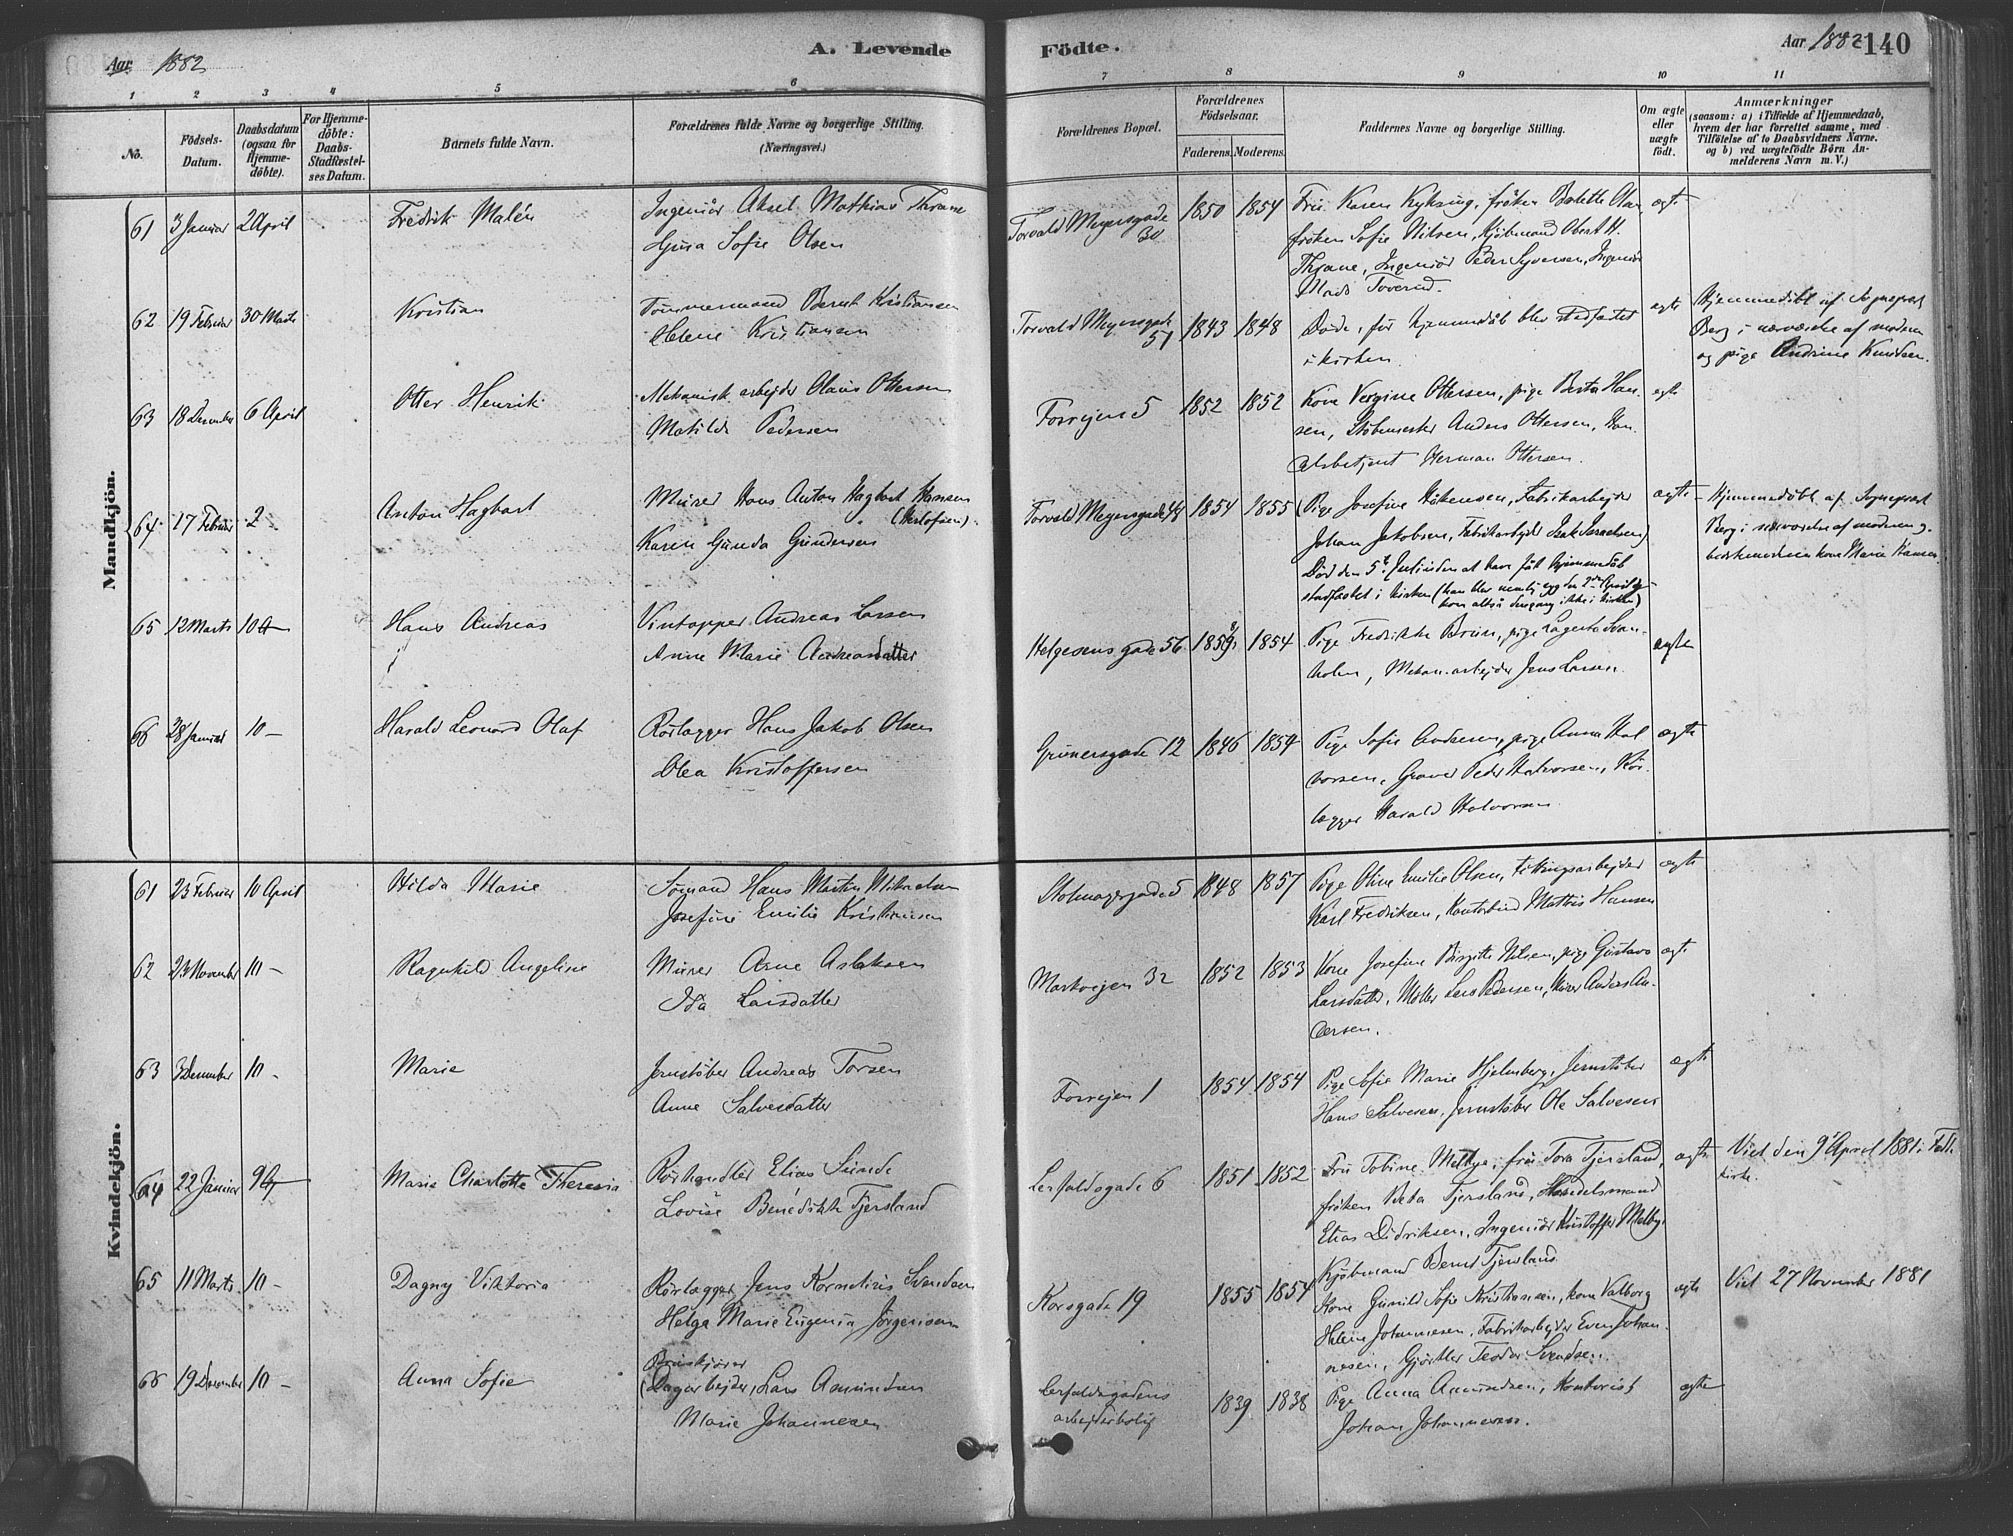 Aar 1882
A. Levende Födte.
Aar 1882 140
1 2 3 4 5 6 7 8 9 10 11
No.
Födsels-Datum.
Daabsdatum (ogsaa for Hjemme-döbte).
For Hjemme-döbte: Daabs-Stadfæstel-ses Datum.
Barnets fulde Navn.
Forældrenes fulde Navne og borgerlige Stilling. (Næringsvei.)
Forældrenes Bopæl.
Forældrenes Födselsaar.
Faderens. Moderens.
Faddernes Navne og borgerlige Stilling.
Om ægte eller uægte födt.
Anmærkninger
(saasom: a) i Tilfælde af Hjemmedaab, hvem der har forrettet samme, med Tilföielse af to Daabsvidners Navne. og b) ved uægtefödte Börn An-melderens Navn m. V.)
Mandkjön.
61 3 Januar 2 April Fredrik Malén Ingeniör Aksel Mathias Thrane
Sofie Olsen
Torvald Meyersgade 30 1850 1854 Fru Karen
fröken Sofie Nilsen, Kjöbmand Obert H.
Thrane, Ingeniör Peder Syversen, Ingeniör
Mads Toverud. ægte
62 19 Februar 30 Marts Kristian Tömmermand Bernt Kristiansen
Helene Kristiansen
Torvald Meyersgade 51 1843 1848 Döde, för hjemmedåb blev stadfæstet
i kirken. ægte
Hjemmedöbt af Sogneprest
Berg i nærværelse af moderen
og pige Andrine Knudsen.
63 18 December 6 April Otter Henrik Mekanisk arbejder Olaus Ottersen
Matilde Pedersen
Fossvejen 5 1852 1852 Kone Vergine Ottersen, pige Berta Han-
sen, Stöbemester Anders Ottersen, Han-
delsbetjent Herman Ottersen. ægte
64 17 Februar 2 Anton Hagbart Murer Hans Anton Hagbart Hansen
Karen Gunda Gundersen
Torvald Meyersgade 44 1854 1855 (Pige Josefine Håkensen, Fabrikarbejder
Johan Jakobsen, Fabrikarbejder Isak Israelsen)
Död den 5te Juli uden at have fåt hjemmedåb
stadfæstet i kirken (han blev nemlig syg den 2den April og
kom altså dengang ikke i kirken) ægte
Hjemmedöbt af Sogneprest
Berg i nærværelse af moderen og
kone Marie Hansen
65 12 Marts 10 Hans Andreas Vintapper Andreas Larsen
Anne Marie Andreasdatter
Helgesens gade 56 1859 1854 Pige Fredrikke Brun, pige Lagerta Svan-
holm, Mekan. arbejder Jens Larsen. ægte
66 28 Januar 10 — Harald Leonard Olaf Rörlægger Hans Jakob Olsen
Olea Kristoffersen
Grünersgade 12 1846 1854 Pige Sofie Andersen, pige Anna Hal
vorsen, Graver Peder Halvorsen, Rör-
lægger Harald Halvorsen ægte
Kvindekjön.
61 23 Februar 10 April Hilda Marie Sömand Hans Martin Mikaelsen
Josefine Emilie Kristiansen
Stolmagergade 5 1848 1857 Pige Oline Emilie Olsen, Fittingsarbejder
Karl Fredriksen, Kontorbud Mathis Hansen ægte
62 23 November 10 — Ragnhild Angeline Murer Arne Aslaksen
Ida Larsdatter
Markvejen 32 1852 1853 Kone Josefine Birgitte Nilsen, pige Gustava
Larsdatter, Möller Lars Pedersen, Murer Anders An-
dersen. ægte
63 3 December 10 — Marie Jernstöber Andreas Torsen
Anne Salvesdatter
Fossvejen 1 1854 1854 Pige Sofie Marie Hjelmberg, Jernstöber
Hans Salvesen, Jernstöber Ole Salvesen ægte
64 22 Januar 9 Marie Charlotte Theresia Rörhandler Elias Sunde
Lovise Benedikte Fjersland
Lerfaldsgade 6 1851 1852 Fru Tobine Melbye, fru Tora Fjersland,
fröken Beta Fjersland, Handelsmand
Elias Didriksen, Ingeniör Kristoffer Melby,
Kjöbmand Bernt Fjersland ægte
Viet den 9 April 1881 i
kirke.
65 11 Marts 10 — Dagny Viktoria Rörlægger Jens Kornelius Svendsen
Helga Marie Eugenia Jörgensen
Korsgade 19 1855 1854 Kone Gunild Sofie Kristiansen, kone Valborg
Helene Johannesen, Fabrikarbejder Even Johan-
nesen, Gjörtler Teodor Svendsen. ægte
Viet 27 November 1881
66 19 December 10 — Anna Sofie Bruskjörer
(Dagarbejder, Lars Amundsen
Marie Johannesen
Lerfaldsgadens
arbejderbolig 1839 1838 Pige Anna Amundsen, Kontorist
Johan Johannesen. ægte